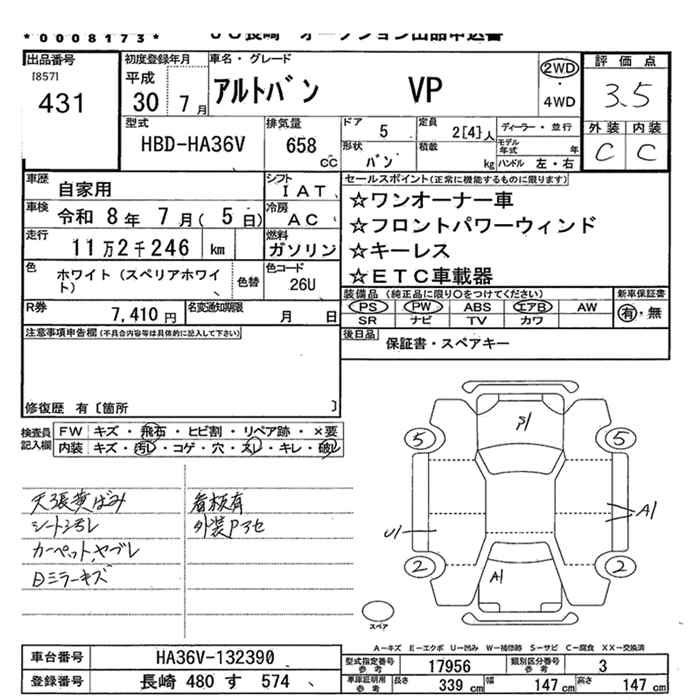 *0008173*
ＪＵ長崎 オークション出品申込書
出品番号
[857]
431
初度登録年月
平成
30 7 月
車名・グレード
アルトバン VP
2WD
・
4WD
評価点
3.5
外装 内装
C C
型式
HBD-HA36V
排気量
658 cc
ドア
5
定員
2[4]人
ディーラー・並行
形状
バン
積載
kg
モデル年式 年
ハンドル 左・右
車歴 自家用
シフト IAT
車検 令和 8年 7月( 5日)
冷房 AC
走行 11万2千246 km
燃料 ガソリン
色 ホワイト(スペリアホワイト)
色替
色コード 26U
R券 7,410円
名変通知期限 月 日
セールスポイント(正常に機能するものに限ります)
☆ワンオーナー車
☆フロントパワーウィンド
☆キーレス
☆ETC車載器
装備品(純正品に限り○をつけてください) 新車保証書
PS PW ABS エアB AW 有・無
SR ナビ TV カワ
後日品 保証書・スペアキー
注意事項申告欄(不具合内容等は具体的に記入して下さい)
修復歴 有〔箇所 〕
検査員記入欄
FW キズ・飛石・ヒビ割・リペア跡・×要
内装 キズ・汚レ・コゲ・穴・スレ・キレ・破レ
天張黄ばみ
シート汚レ
カーペットヤブレ
Dミラーキズ
看板有
外装Pアセ
5 5
A1
U1
2 2
A1
スペア
A－キズ E－エクボ U－凹み W－補修跡 S－サビ C－腐食 XX－交換済
車台番号 HA36V-132390
登録番号 長崎 480 す 574
型式指定番号参考 17956
類別区分番号参考 3
車庫証明用参考 長さ 339 cm 幅 147 cm 高さ 147 cm